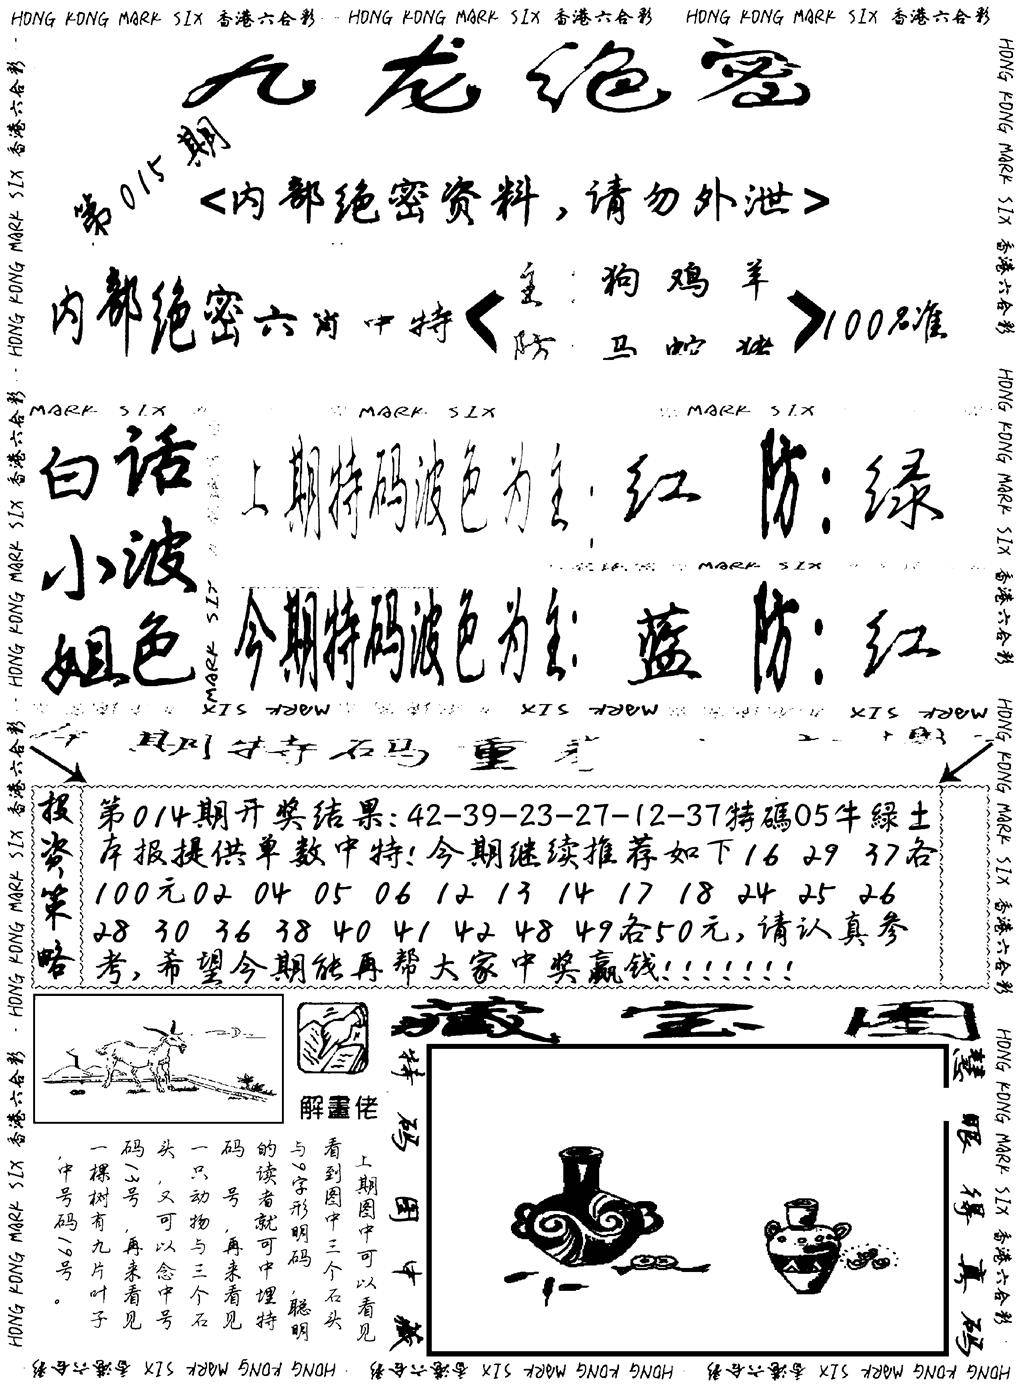 HONG KONG MARK SIX 香港六合彩 HONG KONG MARK SIX 香港六合彩 HONG KONG MARK SIX 香港六合彩
九龙绝密
第015期
<内部绝密资料,请勿外泄>
内部绝密六肖中特
主:狗 鸡 羊
防:马 蛇 猪
100%准
MARK SIX MARK SIX MARK SIX
白话
小波
姐色
上期特码波色为主:红 防:绿
MARK SIX
今期特码波色为主:蓝 防:红
MARK SIX
MARK SIX MARK SIX MARK SIX
期特码重
投资策略
第014期开奖结果:42-39-23-27-12-37特碼05牛綠土
本报提供单数中特!今期继续推荐如下16 29 37各
100元02 04 05 06 12 13 14 17 18 24 25 26
28 30 36 38 40 41 42 48 49各50元,请认真参
考,希望今期能再帮大家中奖赢钱!!!!!!!
解畫佬
上期图中可以看见
看到图中三个石头
与9字形明码,聪明
的读者就可中埋特
码 号,再来看见
一只动物与三个石
头,又可以念中号
码13号,再来看见
一棵树有九片叶子
,中号码19号。
藏宝图
特码图中藏
慧眼得真码
HONG KONG MARK SIX 香港六合彩 HONG KONG MARK SIX 香港六合彩 HONG KONG MARK SIX 香港六合彩 HONG KONG MARK SIX 香港六合彩
HONG KONG MARK SIX 香港六合彩 HONG KONG MARK SIX 香港六合彩 HONG KONG MARK SIX 香港六合彩 HONG KONG MARK SIX 香港六合彩
HONG KONG MARK SIX 香港六合彩 HONG KONG MARK SIX 香港六合彩 HONG KONG MARK SIX 香港六合彩